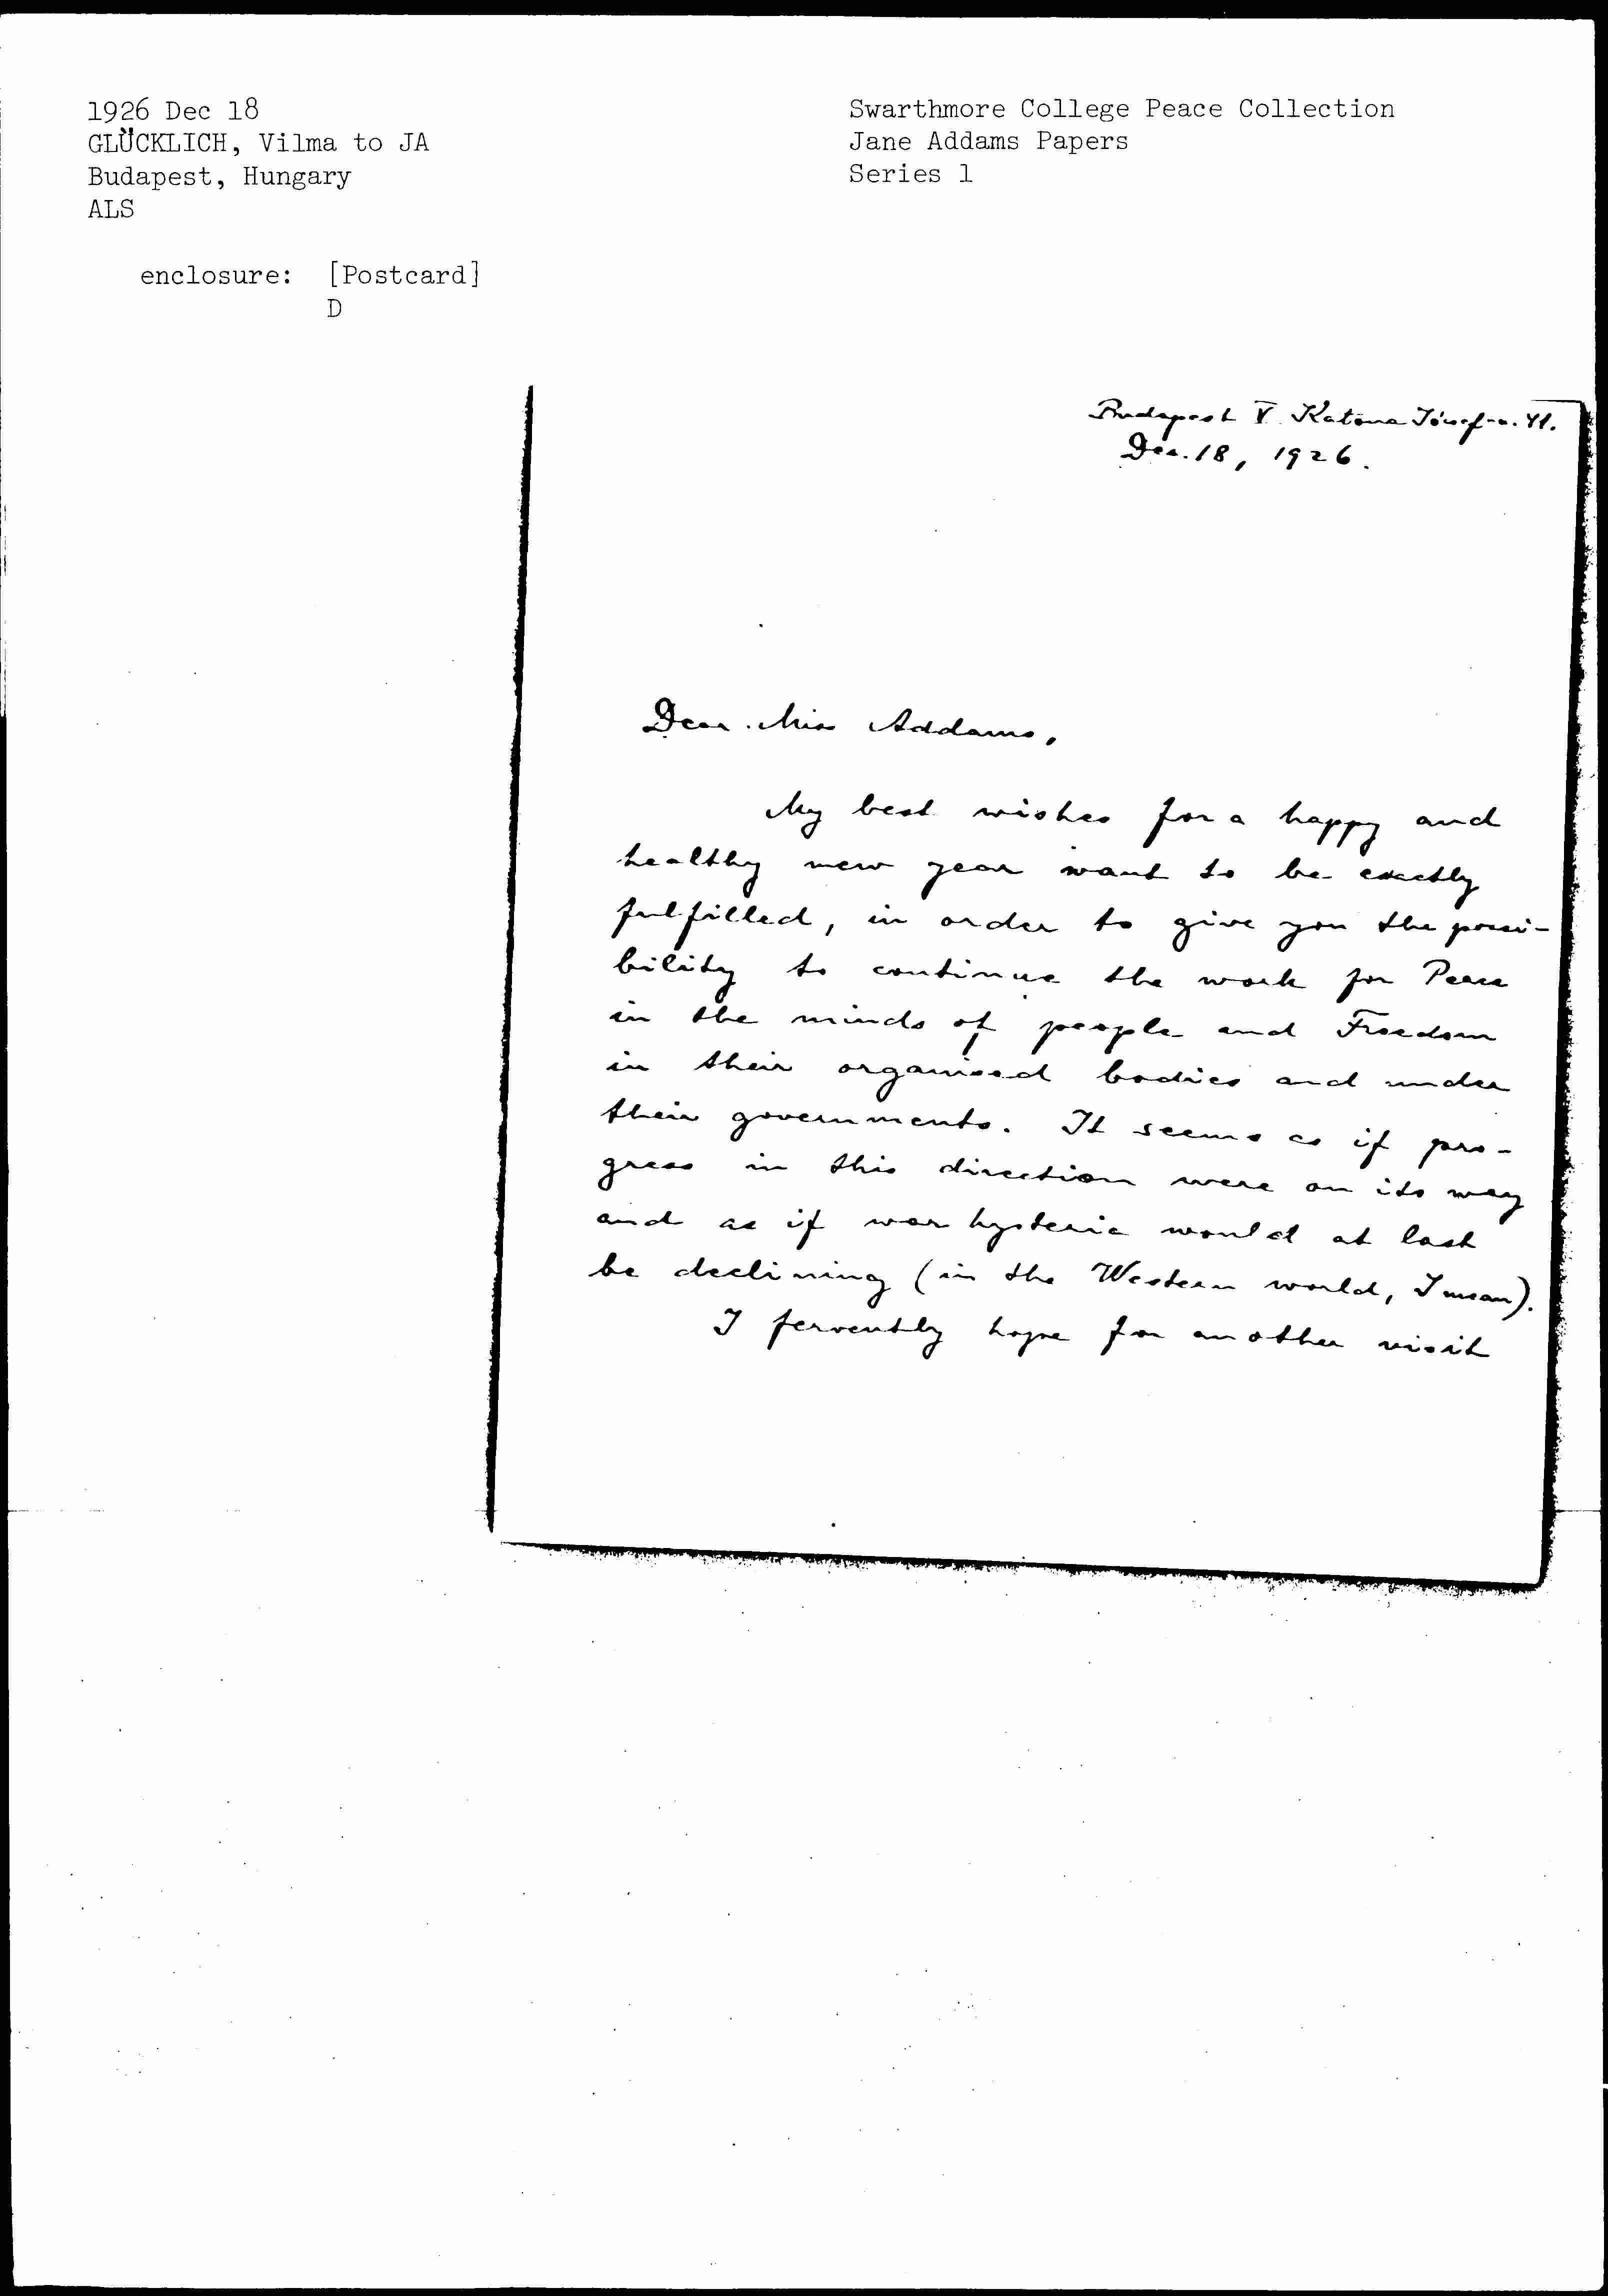 1926 Dec 18
GLÜCKLICH, Vilma to JA
Budapest, Hungary
ALS
enclosure: [Postcard]
D
Swarthmore College Peace Collection
Jane Addams Papers
Series 1
Budapest V. Katona József-u. 41.
Dec. 18, 1926.
Dear Miss Addams,
My best wishes for a happy and
healthy new year want to be exactly
fulfilled, in order to give you the possi-
bility to continue the work for Peace
in the minds of people and Freedom
in their organised bodies and under
their governments. It seems as if pro-
gress in this direction were on its way
and as if war hysteria would at last
be declining (in the Western world, I mean).
I fervently hope for another visit